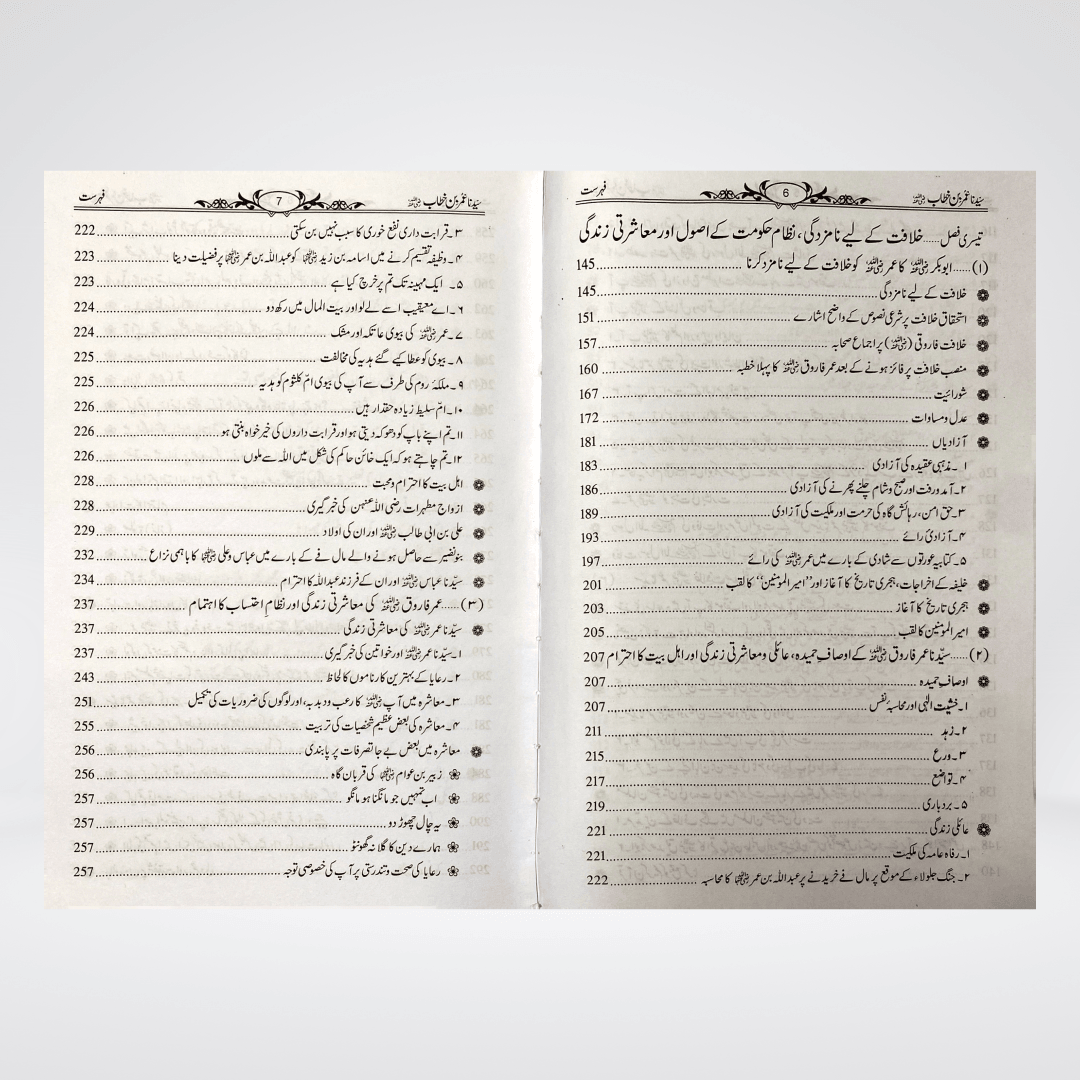 سیّدنا عمر بن خطاب رضی اللہ عنہ 6 فہرست
تیسری فصل......خلافت کے لیے نامزدگی، نظام حکومت کے اصول اور معاشرتی زندگی
(۱)......ابوبکر رضی اللہ عنہ کا عمر رضی اللہ عنہ کو خلافت کے لیے نامزد کرنا 145
خلافت کے لیے نامزدگی 145
استحقاق خلافت پر شرعی نصوص کے واضح اشارے 151
خلافت فاروقی (رضی اللہ عنہ) پر اجماع صحابہ 157
منصب خلافت پر فائز ہونے کے بعد عمر فاروق رضی اللہ عنہ کا پہلا خطبہ 160
شورائیت 167
عدل و مساوات 172
آزادیاں 181
۱۔ مذہبی عقیدہ کی آزادی 183
۲۔ آمد ورفت اور صبح و شام چلنے پھرنے کی آزادی 186
۳۔ حق امن، رہائش گاہ کی حرمت اور ملکیت کی آزادی 189
۴۔ آزادیٔ رائے 193
۵۔ کتابیہ عورتوں سے شادی کے بارے میں عمر رضی اللہ عنہ کی رائے 197
خلیفہ کے اخراجات، ہجری تاریخ کا آغاز اور ’’امیر المومنین‘‘ کا لقب 201
ہجری تاریخ کا آغاز 203
امیر المومنین کا لقب 205
(۲)......سیّدنا عمر فاروق رضی اللہ عنہ کے اوصاف حمیدہ، عائلی ومعاشرتی زندگی اور اہل بیت کا احترام 207
اوصاف حمیدہ 207
۱۔ خشیت الٰہی اور محاسبۂ نفس 207
۲۔ زہد 211
۳۔ ورع 215
۴۔ تواضع 217
۵۔ بردباری 219
عائلی زندگی 221
۱۔ رفاہ عامہ کی ملکیت 221
۲۔ جنگ جلولاء کے موقع پر مال فے خریدنے پر عبداللہ بن عمر رضی اللہ عنہما کا محاسبہ 222
سیّدنا عمر بن خطاب رضی اللہ عنہ 7 فہرست
۳۔ قرابت داری نفع خوری کا سبب نہیں بن سکتی 222
۴۔ وظیفہ تقسیم کرنے میں اسامہ بن زید رضی اللہ عنہما کو عبداللہ بن عمر رضی اللہ عنہما پر فضیلت دینا 223
۵۔ ایک مہینہ تک تم پر خرچ کیا ہے 223
۶۔ اے معیقیب اسے لے لو اور بیت المال میں رکھ دو 224
۷۔ عمر رضی اللہ عنہ کی بیوی عاتکہ اور مشک 224
۸۔ بیوی کو عطا کیے گئے ہدیہ کی مخالفت 225
۹۔ ملکۂ روم کی طرف سے آپ کی بیوی امّ کلثوم کو ہدیہ 225
۱۰۔ امّ سلیط زیادہ حقدار ہیں 226
۱۱۔ تم اپنے باپ کو دھوکہ دیتی ہو اور قرابت داروں کی خیر خواہ بنتی ہو 226
۱۲۔ تم چاہتے ہو کہ ایک خائن حاکم کی شکل میں اللہ سے ملوں 226
اہل بیت کا احترام و محبت 228
ازواج مطہرات رضی اللہ عنہن کی خبر گیری 228
علی بن ابی طالب رضی اللہ عنہ اور ان کی اولاد 229
بنو نضیر سے حاصل ہونے والے مال فے کے بارے میں عباس وعلی رضی اللہ عنہما کا باہمی نزاع 232
سیّدنا عباس رضی اللہ عنہ اور ان کے فرزند عبداللہ کا احترام 234
(۳)......عمر فاروق رضی اللہ عنہ کی معاشرتی زندگی اور نظام احتساب کا اہتمام 237
سیّدنا عمر رضی اللہ عنہ کی معاشرتی زندگی 237
۱۔ سیّدنا عمر رضی اللہ عنہ اور خواتین کی خبر گیری 237
۲۔ رعایا کے بہترین کارناموں کا لحاظ 243
۳۔ معاشرہ میں آپ رضی اللہ عنہ کا رعب ودبدبہ، اور لوگوں کی ضروریات کی تکمیل 251
۴۔ معاشرہ کی بعض عظیم شخصیات کی تربیت 255
معاشرہ میں بعض بے جا تصرفات پر پابندی 256
زبیر بن عوام رضی اللہ عنہ کی قربان گاہ 256
اب تمہیں جو مانگنا ہو مانگو 257
یہ چال چھوڑ دو 257
ہمارے دین کا گلا نہ گھونٹو 257
رعایا کی صحت و تندرستی پر آپ کی خصوصی توجہ 257